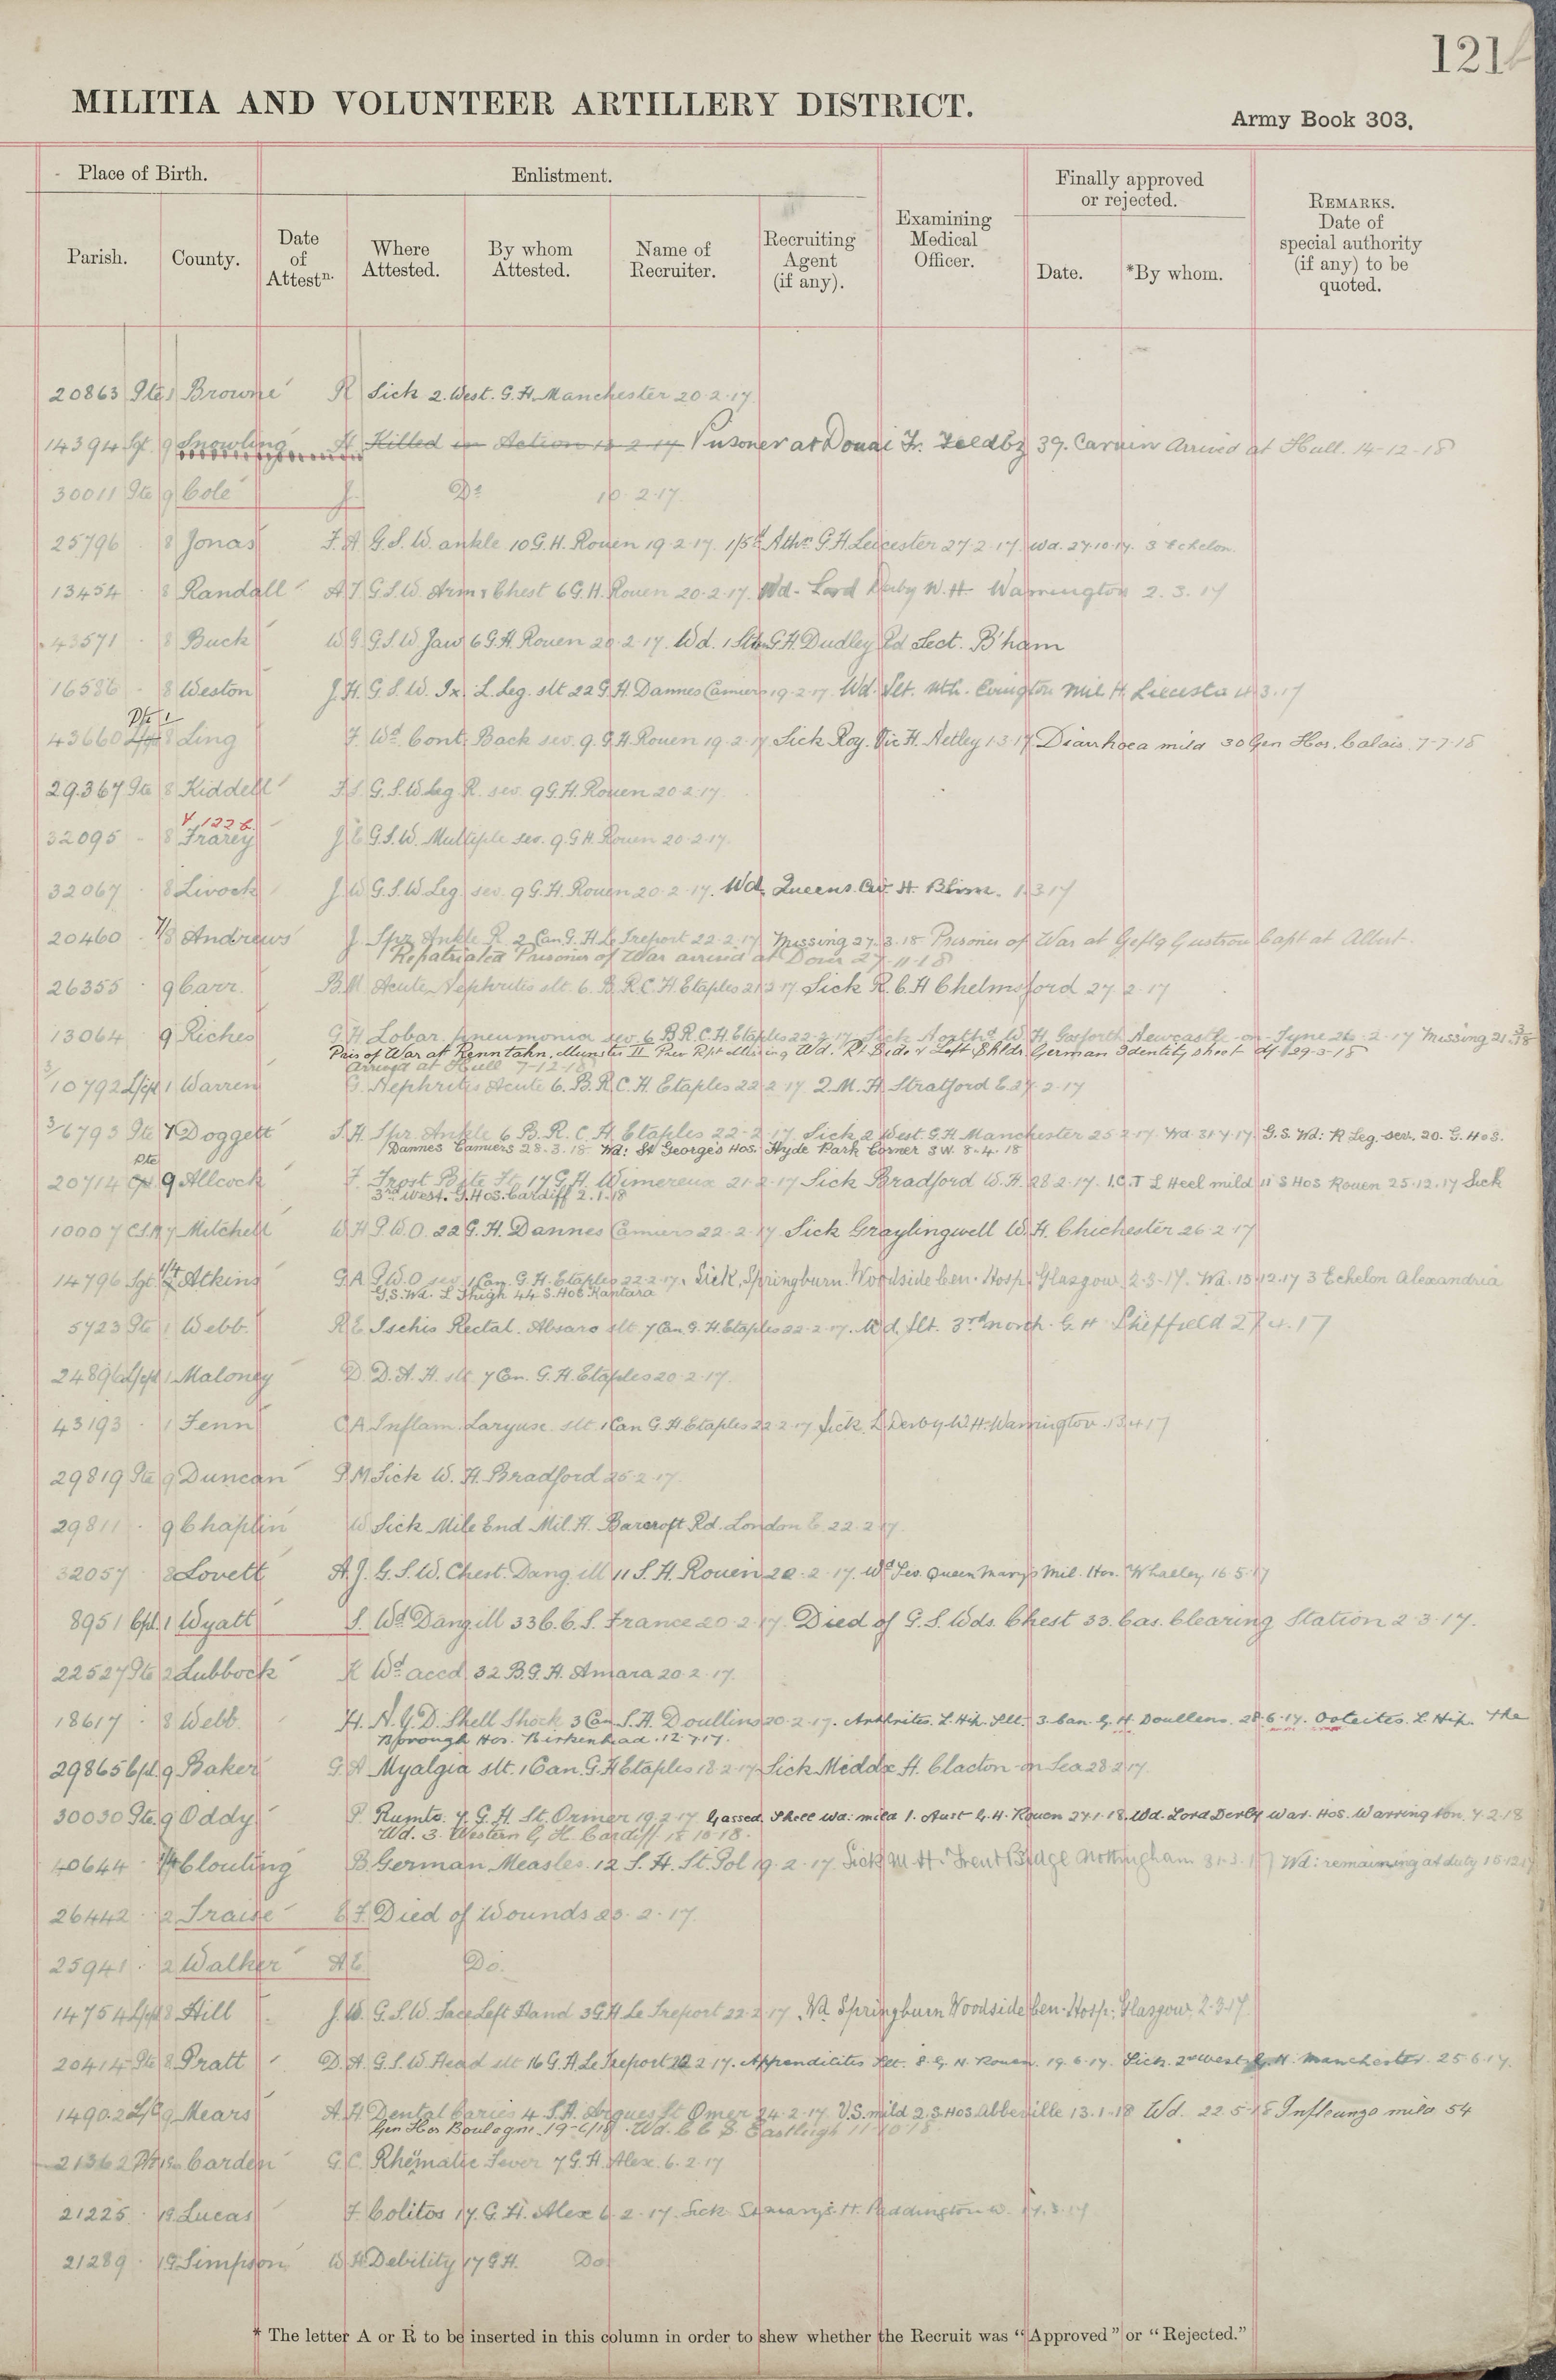 121
MILITIA AND VOLUNTEER ARTILLERY DISTRICT.
Army Book 303.
Place of Birth.
Enlistment.
Finally approved or rejected.
Parish.
County.
Date of Attestn.
Where Attested.
By whom Attested.
Name of Recruiter.
Recruiting Agent (if any).
Examining Medical Officer.
Date.
*By whom.
REMARKS. Date of special authority (if any) to be quoted.
20863 Pte 1 Browne R Sick 2. West. G. H. Manchester 20.2.17.
14394 Sgt. 9 Snowling H Killed in Action 18-2-17 Prisoner at Douai 39. Carvin Arrived at Hull. 14-12-18
30011 Pte 9 Cole J. Do 2.17.
25796 . 8 Jonas F. A G.S.W. ankle 10 G.H. Rouen 19.2.17. G.H. Leicester 27.2.17. Wd. 27.10.17. 3 Echelon.
13454 . 8 Randall A J G.S.W. Arm & Chest 6 G.H. Rouen 20.2.17. Wd. Lord Derby W.H. Warrington 2.3.17
43571 . 8 Buck W G G.S.W Jaw 6 G.H. Rouen 20.2.17. Wd. 1 Sthn G.H. Dudley Rd Sect. B'ham
16586 . 8 Weston J. H. G.S.W. L. Leg. slt 22 G.H. Dannes Camiers 19.2.17. Wd. Slt. Nth. Evington Mil H. 3.17
Pte 1
43660 8 Ling F. Wd. Cont. Back sev. 9. G.H. Rouen 19.2.17 Sick Roy. Vic H. Netley 1.3.17 Diarrhoea mild 30 Gen Hos. Calais 7-7-18
29367 Pte 8 Kiddell F S G.S.W Leg R. sev. 9 G.H. Rouen 20.2.17.
V 122 b.
32095 - 8 Frarey J E G.S.W. Multiple sev. 9. G.H. Rouen 20.2.17.
32067 . 8 Livock J W G.S.W Leg sev. 9 G.H. Rouen 20.2.17. Wd. Queens H. 3.17
20460 . 7/8 Andrews J. Spr Ankle R. 2 Can G.H. Le Treport 22.2.17 Missing 27.3.18 Prisoner of War at Capt at Albert.
Repatriated Prisoner of War arrived at Dover 27.11.18
26355 . 9 Carr. B.M Acute Nephritis slt. 6. B.R.C.H. Etaples 21.2.17 Sick R.C.H Chelmsford 27.2.17
13064 . 9 Riches G H Lobar Pneumonia sev. 6 B.R.C.H. Etaples 22.2.17. Sick North. W H Gosforth Newcastle-on-Tyne 26.2.17 Missing 21.3/18
Pris of War at Renntahn, Munster II Prev Rpt Missing Wd. Rt Side & Left Shldr. German Identity sheet df 29-3-18
Arrived at Hull 7-12-18
3/10792 L/cpl 1 Warren G. Nephritis Acute 6. B.R.C.H. Etaples 22.2.17. 2. M. H. Stratford E. 27.2.17
3/6793 Pte 7 Doggett S H. Spr. Ankle 6 B.R.C.H Etaples 22.2.17. Sick 2 West. G.H Manchester 25.2.17. Wd 31.7.17. G.S. Wd: R Leg. sev. 20. G. Hos.
Dannes Camiers 28.3.18 Wd: St George's Hos. Hyde Park Corner S.W. 8-4-18
Pte
20714 Cpl 9 Allcock F. Frost Bite Ft. 17 G.H. Wimereux 21.2.17 Sick Bradford W.H. 28.2.17. I.C.T L Heel mild 11 S Hos Rouen 25.12.17 Sick
3rd West. G. Hos. Cardiff 2.1.18
10007 C.S.M 7 Mitchell W H P.U.O. 22 G.H. Dannes Camiers 22.2.17 Sick Graylingwell W.H. Chichester 26.2.17
14796 Sgt 1/4 Atkins G.A P.U.O sev 1 Can. G.H. Etaples 22.2.17. Sick, Springburn Woodside Cen. Hosp. Glasgow 2.3.17. Wd. 15.12.17 3 Echelon Alexandria
G.S. Wd. L Thigh 44 S. Hos Kantara
5723 Pte 1 Webb. R E Ischio Rectal. slt 7 Can G.H. Etaples 22.2.17. Slt. 3rd North. G H Sheffield 27.4.17
L/cpl 1 Maloney D. D.A.H. slt 7 Can. G.H. Etaples 20.2.17.
43193 . 1 Fenn C A Inflam. slt. 1 Can G.H Etaples 22.2.17 Sick. L Derby W.H. Warrington 13.4.17
29819 Pte 9 Duncan P. M Sick W.H. Bradford 25.2.17.
29811 . 9 Chaplin W Sick Mile End Mil. H. Bancroft Rd. London E. 22.2.17.
32057 . 8 Lovett A.J. G.S.W. Chest. Dang. ill 11 S.H. Rouen 20.2.17. Wd Sev. Queen Marys Mil. Hos. Whalley 16.5.17
8951 Cpl. 1 Wyatt S. Wd. Dang ill 33 C.C.S. France 20.2.17. Died of G.S. Wds. Chest 33. Cas. Clearing Station 2.3.17.
22527 Pte 2 Lubbock K Wd. accd. 32 B.G.H. Amara 20.2.17.
18617 . 8 Webb. H. N.Y.D. Shell Shock 3 Can S.H. Doullens 20.2.17. Arthritis. L. Hip. Slt. 3 Can. G.H. Doullens. 28.6.17. Osteitis. L. Hip. The
Borough Hos. Birkenhead. 12.7.17.
29865 Cpl. 9 Baker G H Myalgia slt. 1 Can. G.H Etaples 18.2.17. Sick Middx H. Clacton-on-Sea 28.2.17.
30030 Pte. 9 Oddy P. 7. G.H. St. Omer 19.2.17 Gassed. Shell Wd: mild 1. Aust G.H. Rouen 27.1.18. Wd. Lord Derby War. Hos. Warrington. 7.2.18
Wd. 3. Western G H. Cardiff. 18 10 18.
40644 . Clouting B. German Measles. 12 S.H. St. Pol 19.2.17. Sick M.H. Trent Bridge Nottingham 31.3.17 Wd: remaining at duty
26442 . 2 Traise C F. Died of Wounds 20.2.17.
25941 . 2 Walker A E. Do.
14754 L/cpl 8 Hill J. W. G.S.W. Face Left Hand 3 G.H Le Treport 22.2.17. Wd. Springburn Woodside Cen. Hosp. Glasgow 2.3.17.
20414 Pte 8 Pratt D. A. G.S.W. Head slt 16 G.H. Le Treport 22.2.17. Appendicitis Slt. 8. G.H. Rouen. 19.6.17. Sick. 2nd West. G.H. Manchester. 25.6.17.
14902 L/C 9 Mears A. H Dental Caries 4 S.H. Arques St Omer 24.2.17. V.S. mild 2. S. Hos Abbeville 13.1.18 Wd. 22.5.18 Influenza mild 54
Gen Hos Boulogne. 19-6/18. Wd. C C S. Eastleigh
21362 Carden G.C. Rhematic Fever 7 G.H. Alex. 6.2.17
21225 . 19. Lucas F. Colitos 17. G.H. Alex 6.2.17. Sick St Mary's. H. Paddington W. 3.17
21289 . 19 Simpson W H Debility 17 G H. Do
* The letter A or R to be inserted in this column in order to shew whether the Recruit was "Approved" or "Rejected."